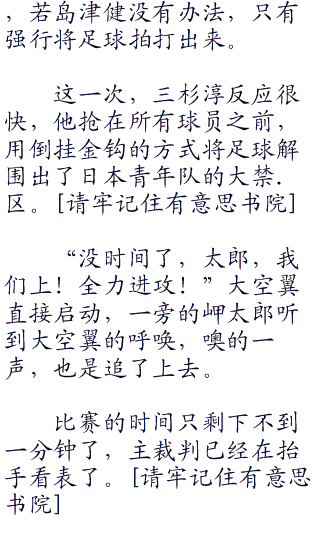 ，若岛津健没有办法，只有
强行将足球拍打出来。
这一次，三杉淳反应很
快，他抢在所有球员之前，
用倒挂金钩的方式将足球解
围出了日本青年队的大禁.
区。[请牢记住有意思书院]
“没时间了，太郎，我
们上！全力进攻！”大空翼
直接启动，一旁的岬太郎听
到大空翼的呼唤，噢的一
声，也是追了上去。
比赛的时间只剩下不到
一分钟了，主裁判已经在抬
手看表了。[请牢记住有意思
书院]